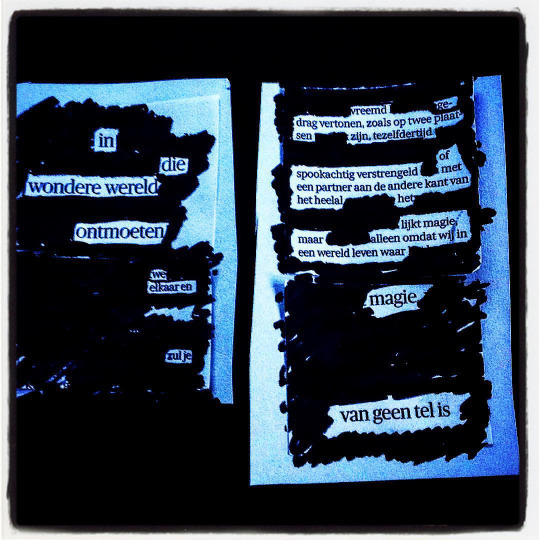 in
die
wondere wereld
ontmoeten
we
elkaar en
zul je
vreemd ge-
drag vertonen, zoals op twee plaat
sen zijn, tezelfdertijd
of
spookachtig verstrengeld met
een partner aan de andere kant van
het heelal het
lijkt magie,
maar alleen omdat wij in
een wereld leven waar
magie
van geen tel is